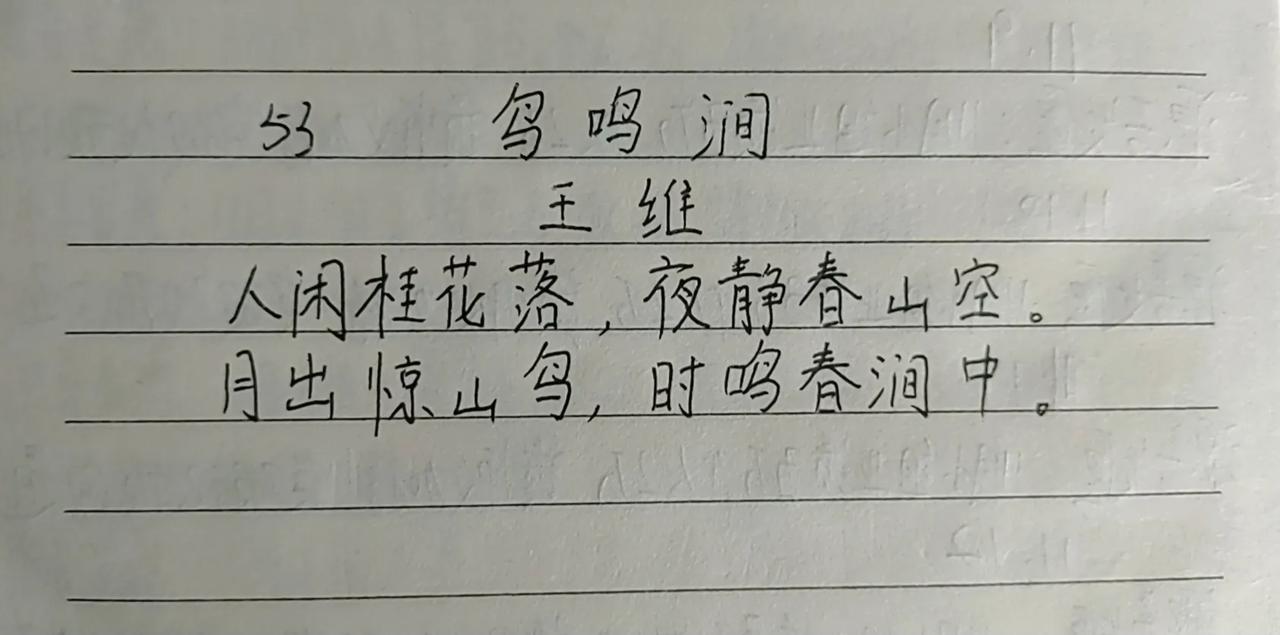 53 鸟鸣涧
王维
人闲桂花落,夜静春山空。
月出惊山鸟,时鸣春涧中。